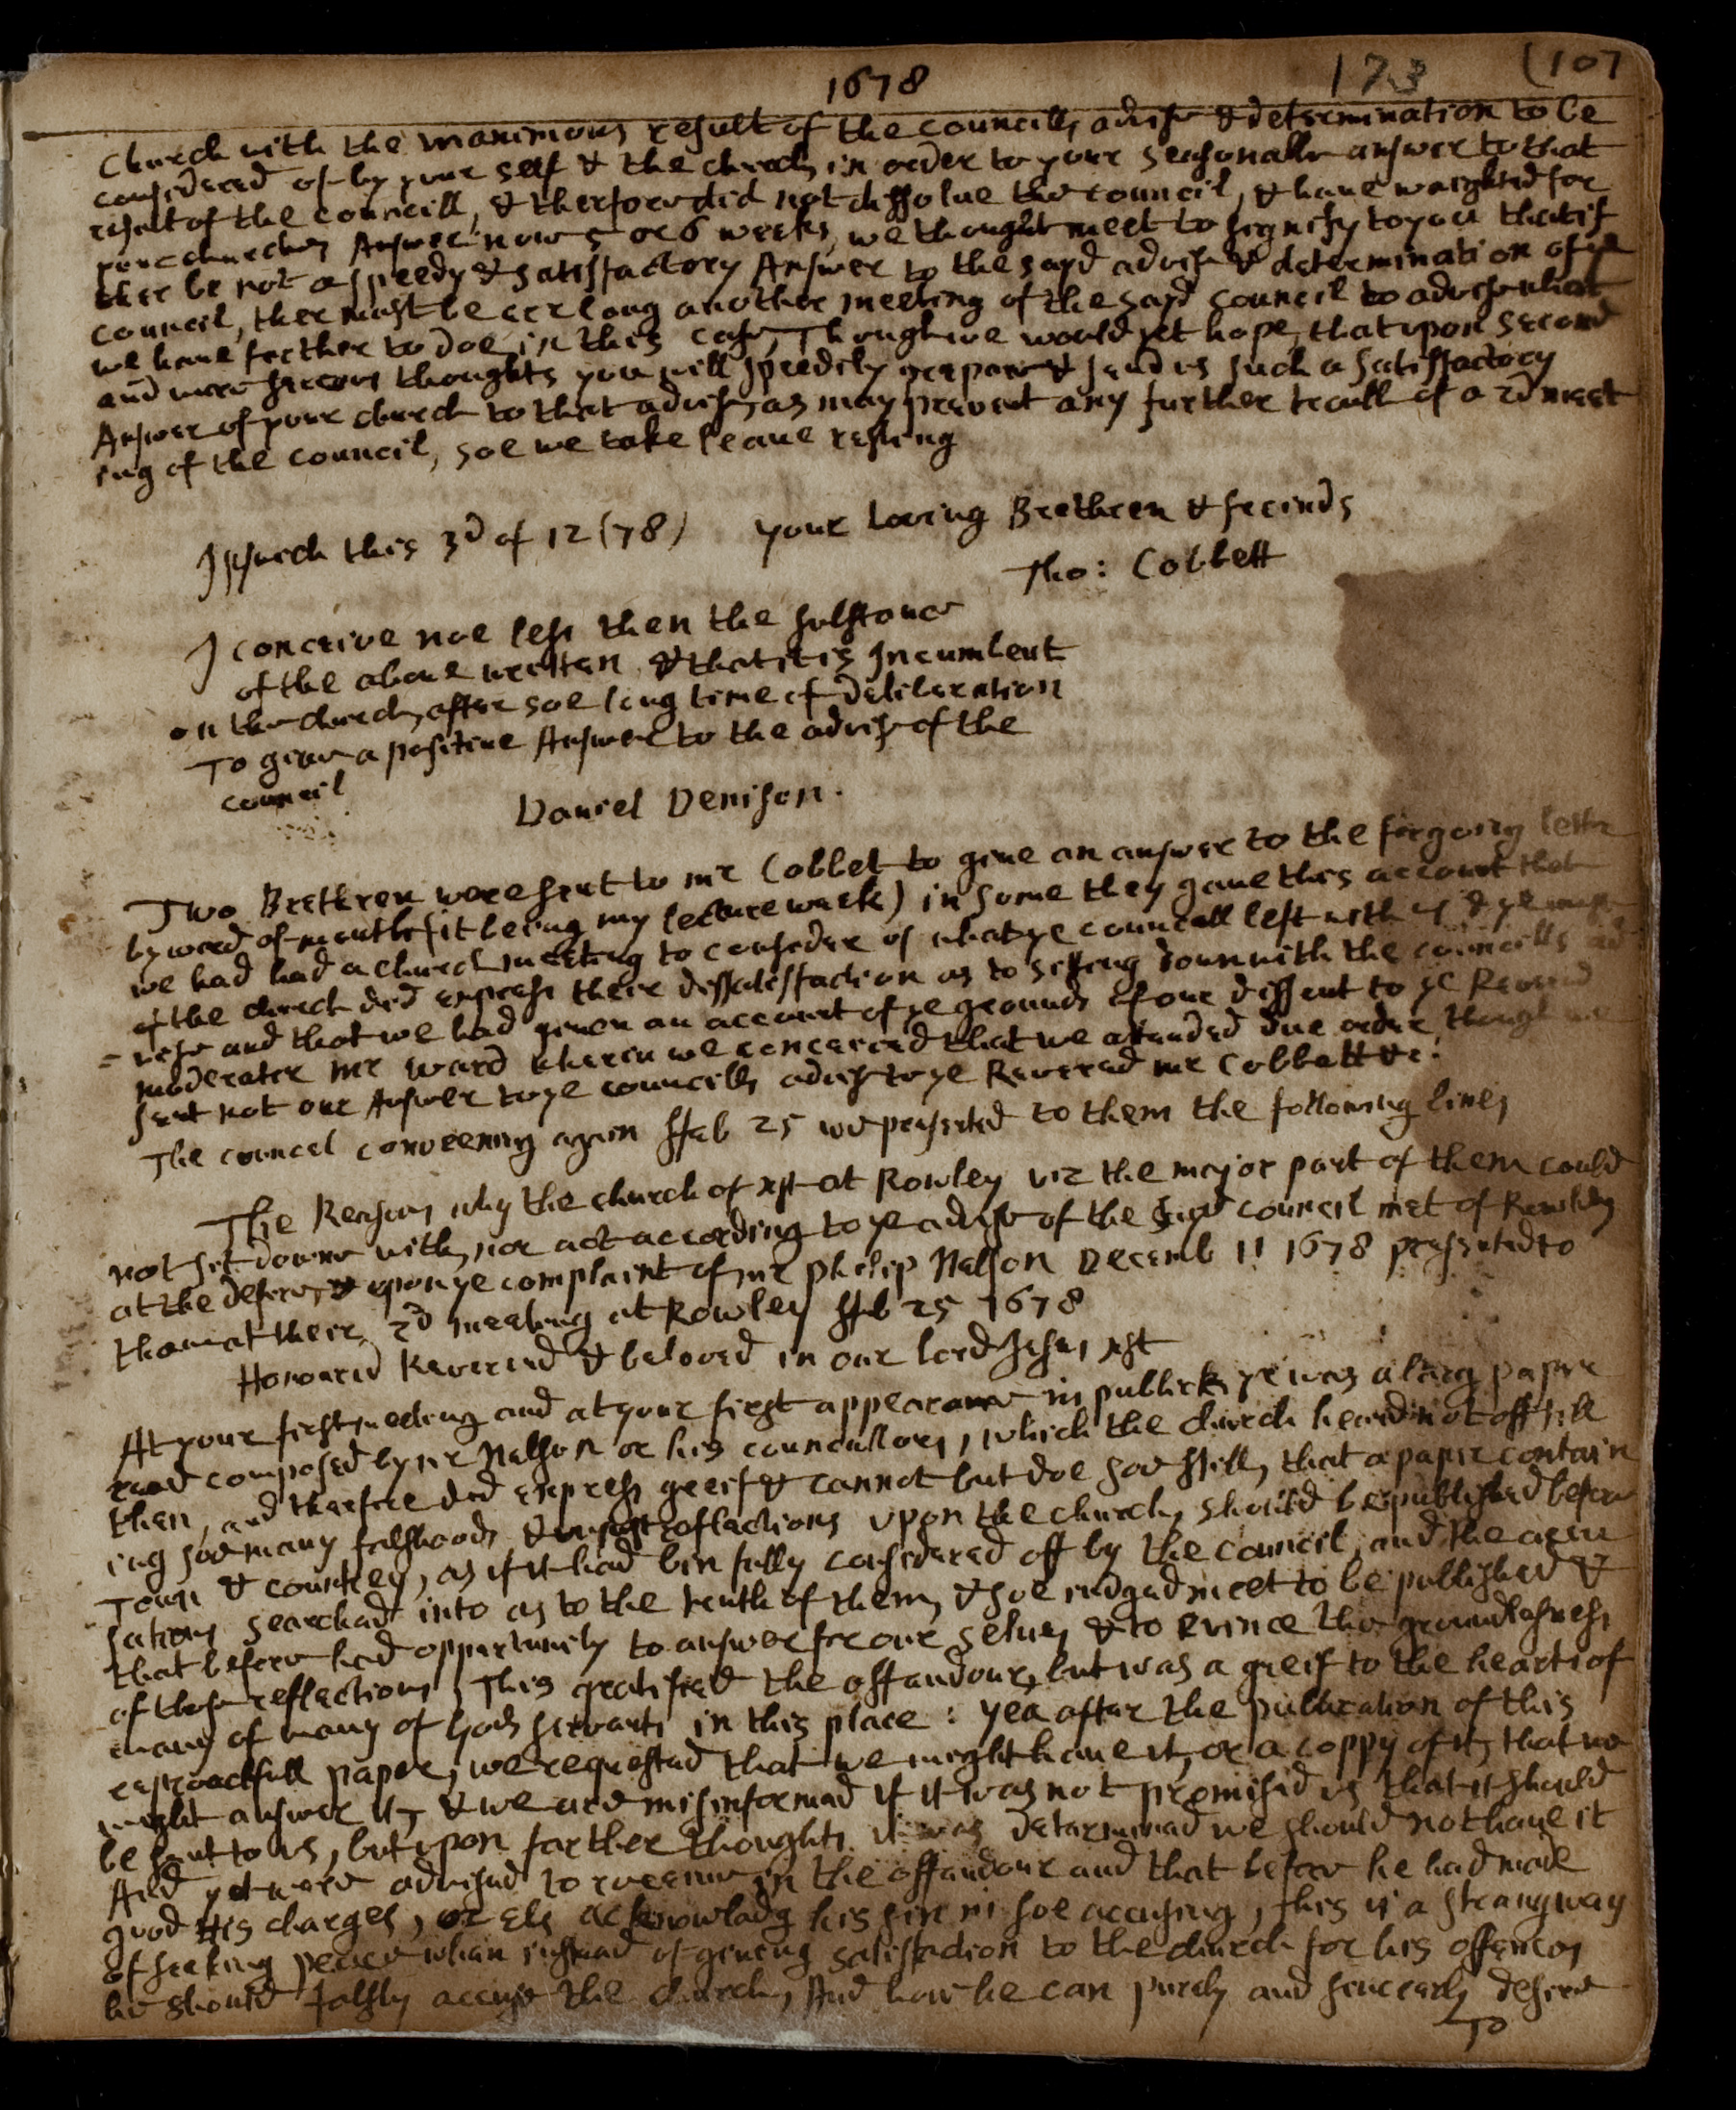 1678 173 (107
Church with the unanimous result of the councills advise & determination to be
considered of by your self & the church in order to your seasonable answer to that
result of the councill, & therfore did not dissolve the council, & have waighted for
your churches Answer now 5 or 6 weeks, we thought meet to signify to you that if
ther be not a speedy & satisfactory Answer to the sayd advise & determination of ye
council, ther must be ere long another meeting of the sayd council to advise what
we have farther to doe in this case, Though we would yet hope, that upon second
and more serious thoughts you will speedily prepare & send us such a satisffactory
Answer of your church to that advise, as may prevent any further trouble of a 2d meet
ing of the council, soe we take leave resting
Ipswich this 3d of 12 (78) your loving Brethren & freinds
Tho: Cobbett
I conceive noe less then the substance
of the above written & that it is Incumbent
on the church, after soe long time of deliberation
To give a positive Answer to the advise of the
council
Daniel Denison.
Two Brethren were sent to mr Cobbet to give an answer to the forgoing letter
by word of mouth (it being my lecture week) in some they gave this account that
we had had a church meeting to consider of what ye councell left with us & ye
of the church did express there dissatisfaction as to sitting down with the councills ad
= vise and that we had given an account of ye grounds of our dissent to ye Reverend
moderater mr Ward wherin we conceived that we attended due order, though we
sent not our Answer to ye councills advise to ye Reverend mr Cobbett &c:
The councel conveening again ffeb 25 we presented to them the following lines
The Reasons why the church of xst at Rowley viz the major part of them could
not sit downe with, nor act according to ye advise of the Revd council met at Rowley
at the desire, & upon ye complaint of mr philip Nelson Decemb 11 1678 presented to
them at their 2d meeting at Rowley ffeb 25 1678
Honoured Reverend & beloved in our lord Jesus xst
At your first meeting and at your first appearance in publick yr was a larg paper
read composed by mr Nelson or his councellors, which the church heard not off till
then, and therfore did express greif & cannot but doe soe still, that a paper contain
ing soe many falshoods, & unjust reflections upon the church, should be published before
Town & countrey, as if it had bin fully considered off by the council, and the accu
sations searched into as to the truth of them, & soe judged meet to be published &
that before had opportunity to answer for our selves & to evince the groundlesness
of those reflections, This gratified the offendour, but was a greif to the hearts of
many of many of Gods servants in this place: yea after the publication of this
reproachfull paper, we requested that we might have it, or a coppy of it, that we
might answer it, & we are misinformed if it was not promised us that it should
be sent to us, but upon farther thoughts it was determined we should not have it
And yet were advised to receive in the offendour and that before he had made
good His charges, or els acknowladg his sin in soe accusing, this is a strang way
of seeking peace when instead of giveing satisfaction to the church for his offences
he should falsly accuse the church, And how he can purely and sincerely desire
To